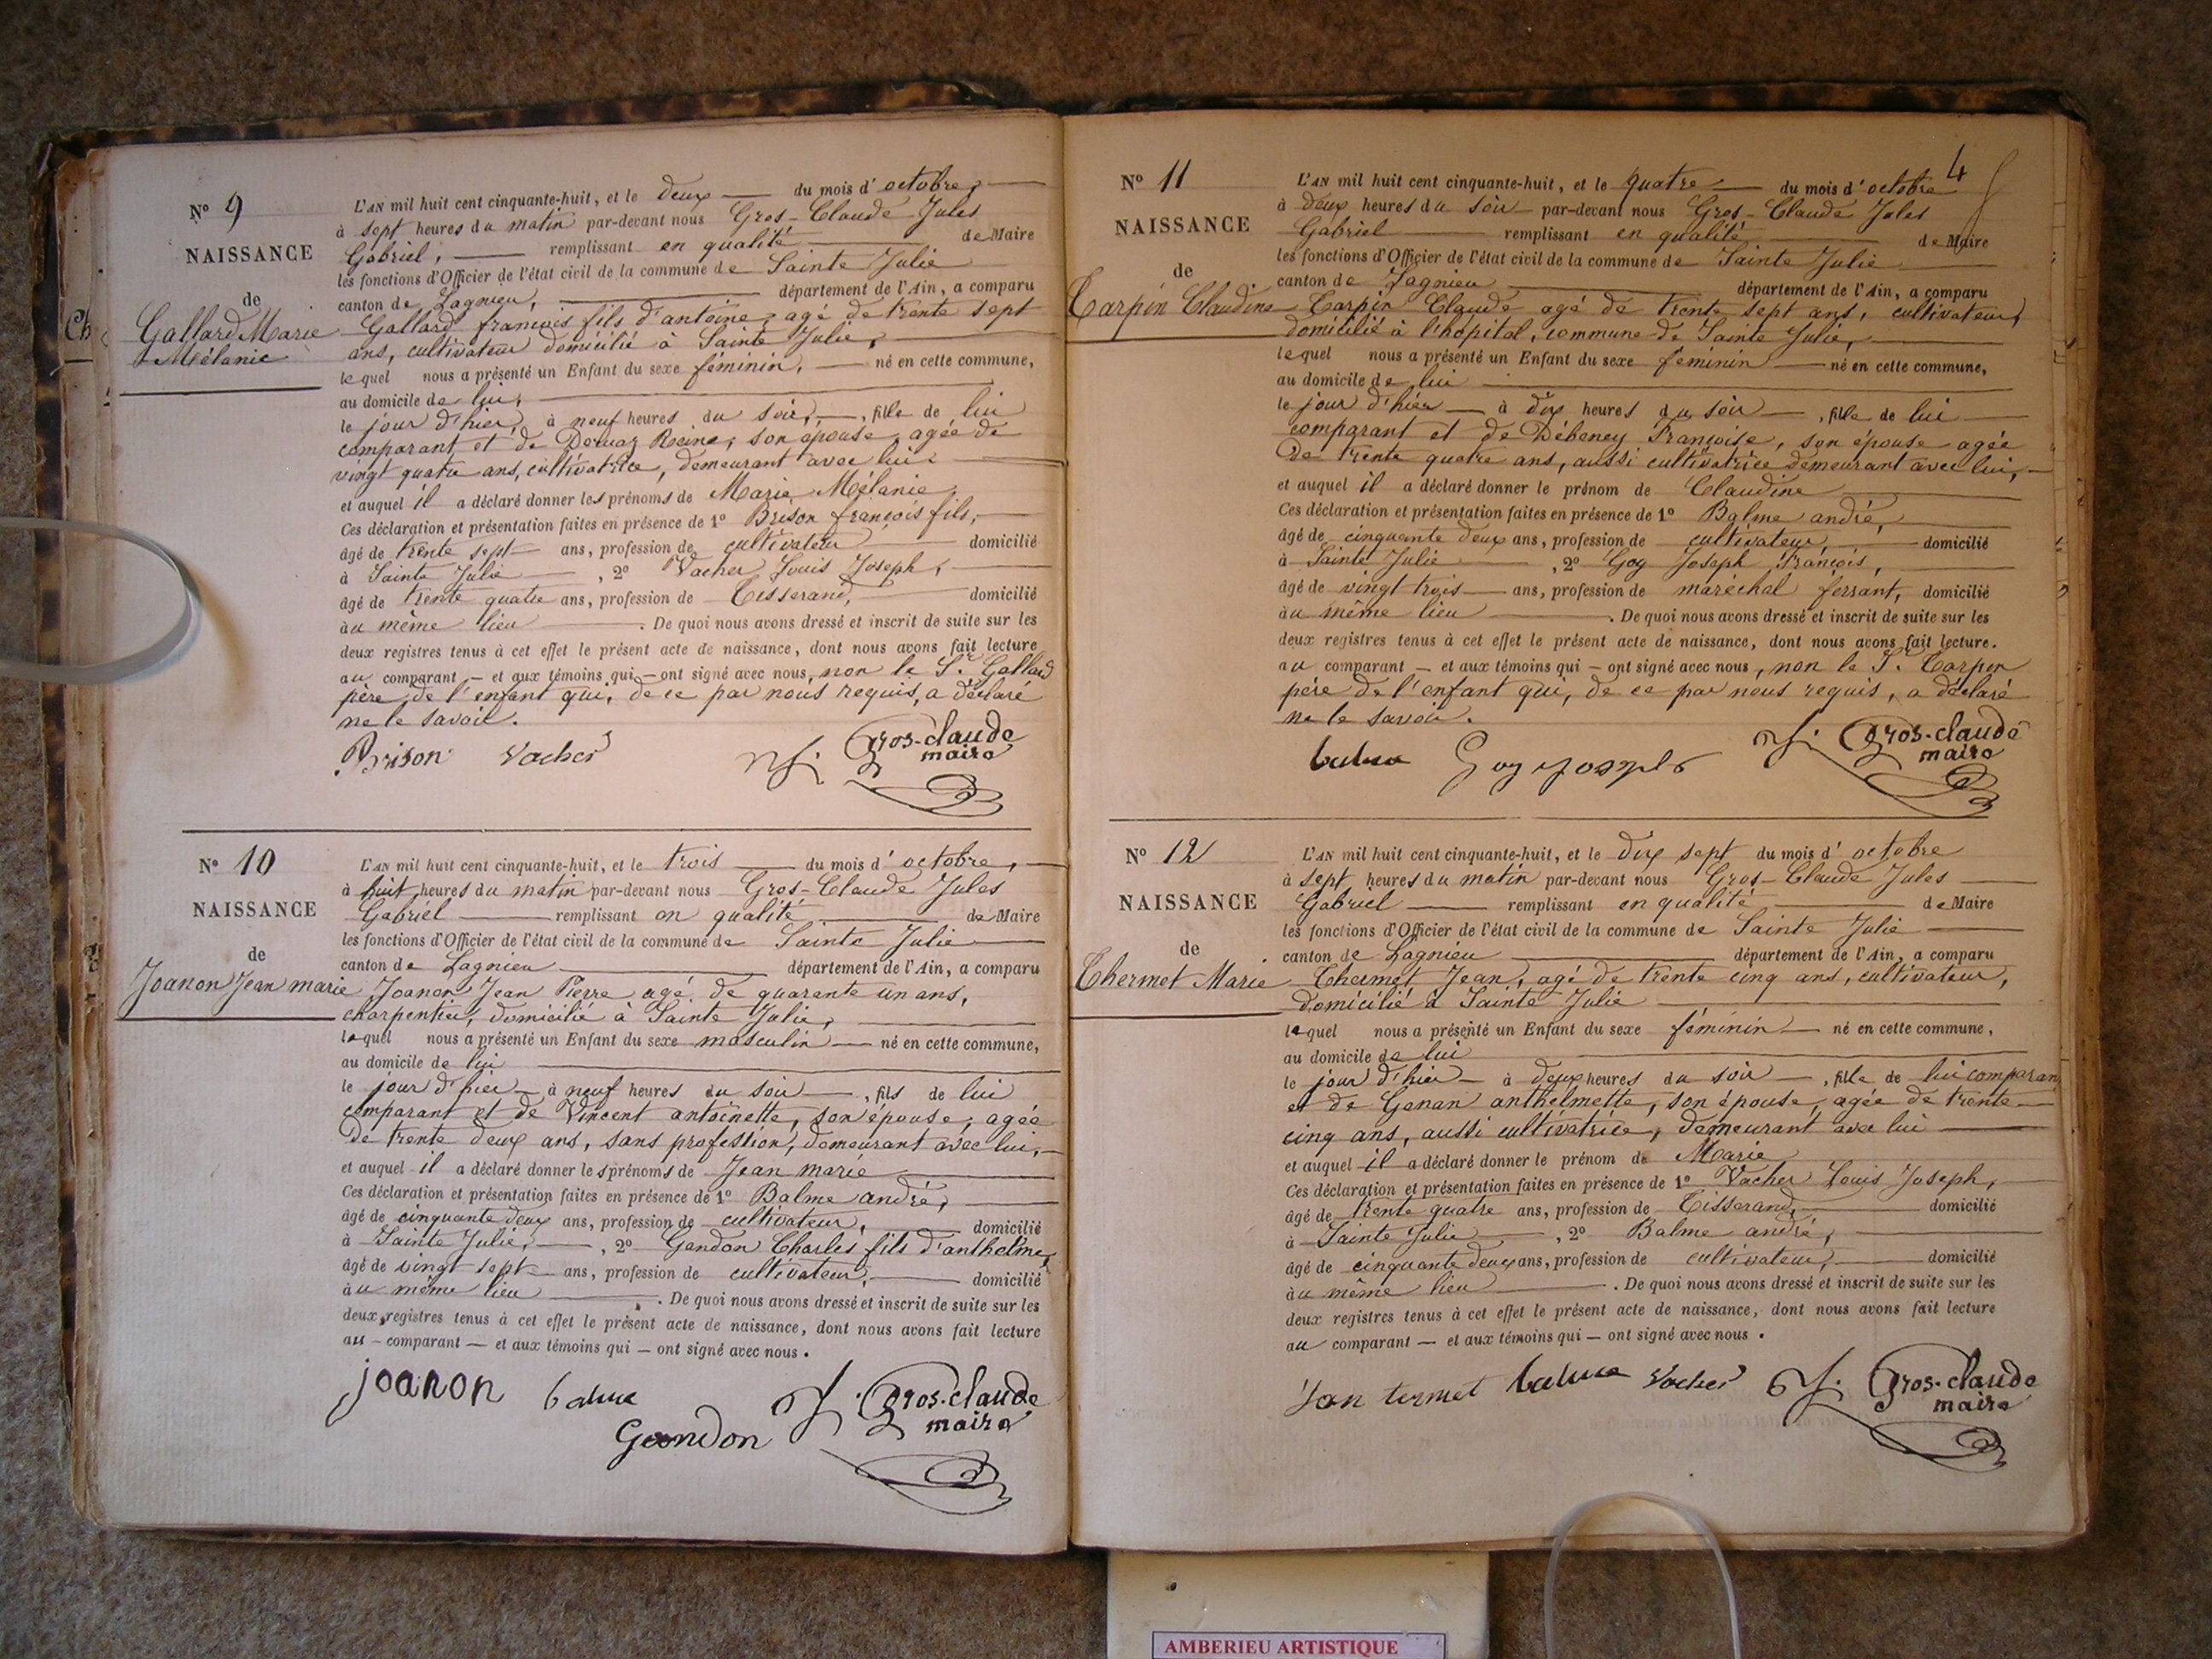 Nº 9
NAISSANCE
de
Gallard Marie
Mélanie
L'AN mil huit cent cinquante-huit, et le deux du mois d'octobre,
à sept heures du matin par-devant nous Gros-Claude Jules
Gabriel, remplissant en qualité de Maire
les fonctions d'Officier de l'état civil de la commune de Sainte Julie
canton de Lagnieu, département de l'Ain, a comparu
Gallard françois fils d'antoine, agé de trente sept
ans, cultivateur domicilié à Sainte Julie,
lequel nous a présenté un Enfant du sexe féminin, né en cette commune,
au domicile de lui,
le jour d'hier, à neuf heures du soir, fille de lui
comparant et de Dervaz Reine, son épouse, agée de
vingt quatre ans, cultivatrice, demeurant avec lui.
et auquel il a déclaré donner les prénoms de Marie Mélanie
Ces déclaration et présentation faites en présence de 1º Brison françois fils,
âgé de trente sept ans, profession de cultivateur domicilié
à Sainte Julie, 2º Vacher Louis Joseph,
âgé de trente quatre ans, profession de Tisserand, domicilié
au même lieu. De quoi nous avons dressé et inscrit de suite sur les
deux registres tenus à cet effet le présent acte de naissance, dont nous avons fait lecture
au comparant - et aux témoins qui - ont signé avec nous, non le Sr. Gallard
père de l'enfant qui, de ce par nous requis, a déclaré
ne le savoir.
Brison Vacher Gros-claude
maire
Nº 10
NAISSANCE
de
Joanon Jean marie
L'AN mil huit cent cinquante-huit, et le trois du mois d'octobre,
à huit heures du matin par-devant nous Gros-Claude Jules
Gabriel remplissant en qualité de Maire
les fonctions d'Officier de l'état civil de la commune de Sainte Julie
canton de Lagnieu département de l'Ain, a comparu
Joanon Jean Pierre agé de quarante un ans,
charpentier, domicilié à Sainte Julie,
lequel nous a présenté un Enfant du sexe masculin né en cette commune,
au domicile de lui
le jour d'hier à neuf heures du soir, fils de lui
comparant et de Vincent antoinette, son épouse, agée
de trente deux ans, sans profession, demeurant avec lui,
et auquel il a déclaré donner les prénoms de Jean marie
Ces déclaration et présentation faites en présence de 1º Balme andré,
âgé de cinquante deux ans, profession de cultivateur, domicilié
à Sainte Julie, 2º Gandon Charles fils d'anthelme,
âgé de vingt sept ans, profession de cultivateur, domicilié
au même lieu. De quoi nous avons dressé et inscrit de suite sur les
deux registres tenus à cet effet le présent acte de naissance, dont nous avons fait lecture
au - comparant - et aux témoins qui - ont signé avec nous.
joanon balme Gros-claude
Gandon maire
4
Nº 11
NAISSANCE
de
Carpin Claudine
L'AN mil huit cent cinquante-huit, et le quatre du mois d'octobre
à deux heures du soir par-devant nous Gros-Claude Jules
Gabriel remplissant en qualité de Maire
les fonctions d'Officier de l'état civil de la commune de Sainte Julie
canton de Lagnieu département de l'Ain, a comparu
Carpin Claude agé de trente sept ans, cultivateur,
domicilié à l'hopital, commune de Sainte Julie,
lequel nous a présenté un Enfant du sexe féminin né en cette commune,
au domicile de lui
le jour d'hier à dix heures du soir, fille de lui
comparant et de Débeney Françoise, son épouse agée
de trente quatre ans, aussi cultivatrice demeurant avec lui,
et auquel il a déclaré donner le prénom de Claudine
Ces déclaration et présentation faites en présence de 1º Balme andré,
âgé de cinquante deux ans, profession de cultivateur, domicilié
à Sainte Julie, 2º Goy Joseph François,
âgé de vingt trois ans, profession de maréchal ferrant, domicilié
au même lieu. De quoi nous avons dressé et inscrit de suite sur les
deux registres tenus à cet effet le présent acte de naissance, dont nous avons fait lecture.
au comparant - et aux témoins qui - ont signé avec nous, non le Sr. Carpin
père de l'enfant qui, de ce par nous requis, a déclaré
ne le savoir.
balme Goy joseph Gros-claude
maire
Nº 12
NAISSANCE
de
Chermet Marie
L'AN mil huit cent cinquante-huit, et le dix sept du mois d'octobre
à sept heures du matin par-devant nous Gros-Claude Jules
Gabriel remplissant en qualité de Maire
les fonctions d'Officier de l'état civil de la commune de Sainte Julie
canton de Lagnieu département de l'Ain, a comparu
Chermet Jean, agé de trente cinq ans, cultivateur,
domicilié à Sainte Julie
lequel nous a présenté un Enfant du sexe féminin né en cette commune,
au domicile de lui
le jour d'hier à deux heures du soir, fille de lui comparant
et de Genan anthelmette, son épouse, agée de trente
cinq ans, aussi cultivatrice, demeurant avec lui
et auquel il a déclaré donner le prénom de Marie
Ces déclaration et présentation faites en présence de 1º Vacher Louis Joseph,
âgé de trente quatre ans, profession de Tisserand, domicilié
à Sainte Julie, 2º Balme andré,
âgé de cinquante deux ans, profession de cultivateur, domicilié
au même lieu. De quoi nous avons dressé et inscrit de suite sur les
deux registres tenus à cet effet le présent acte de naissance, dont nous avons fait lecture
au comparant - et aux témoins qui - ont signé avec nous.
Jan termet balme Vacher Gros-claude
maire
AMBERIEU ARTISTIQUE